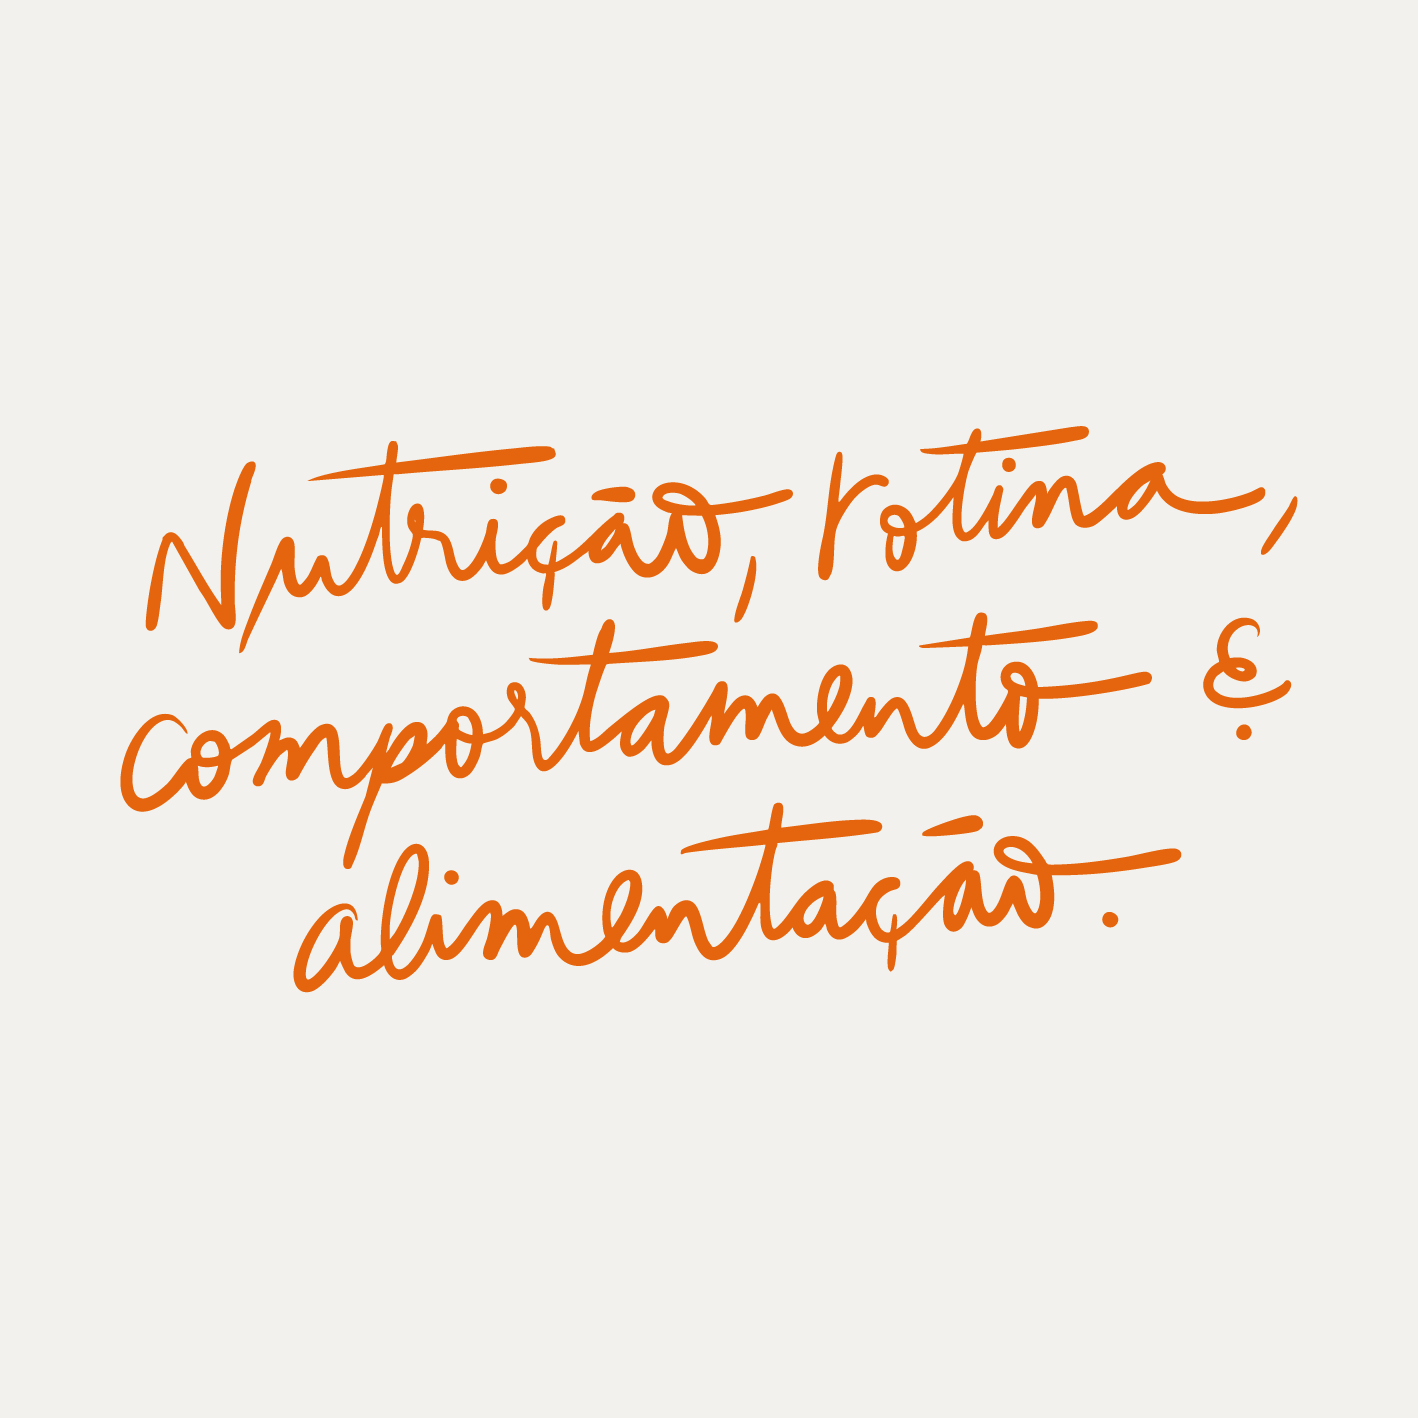 Nutrição, rotina,
comportamento &
alimentação.